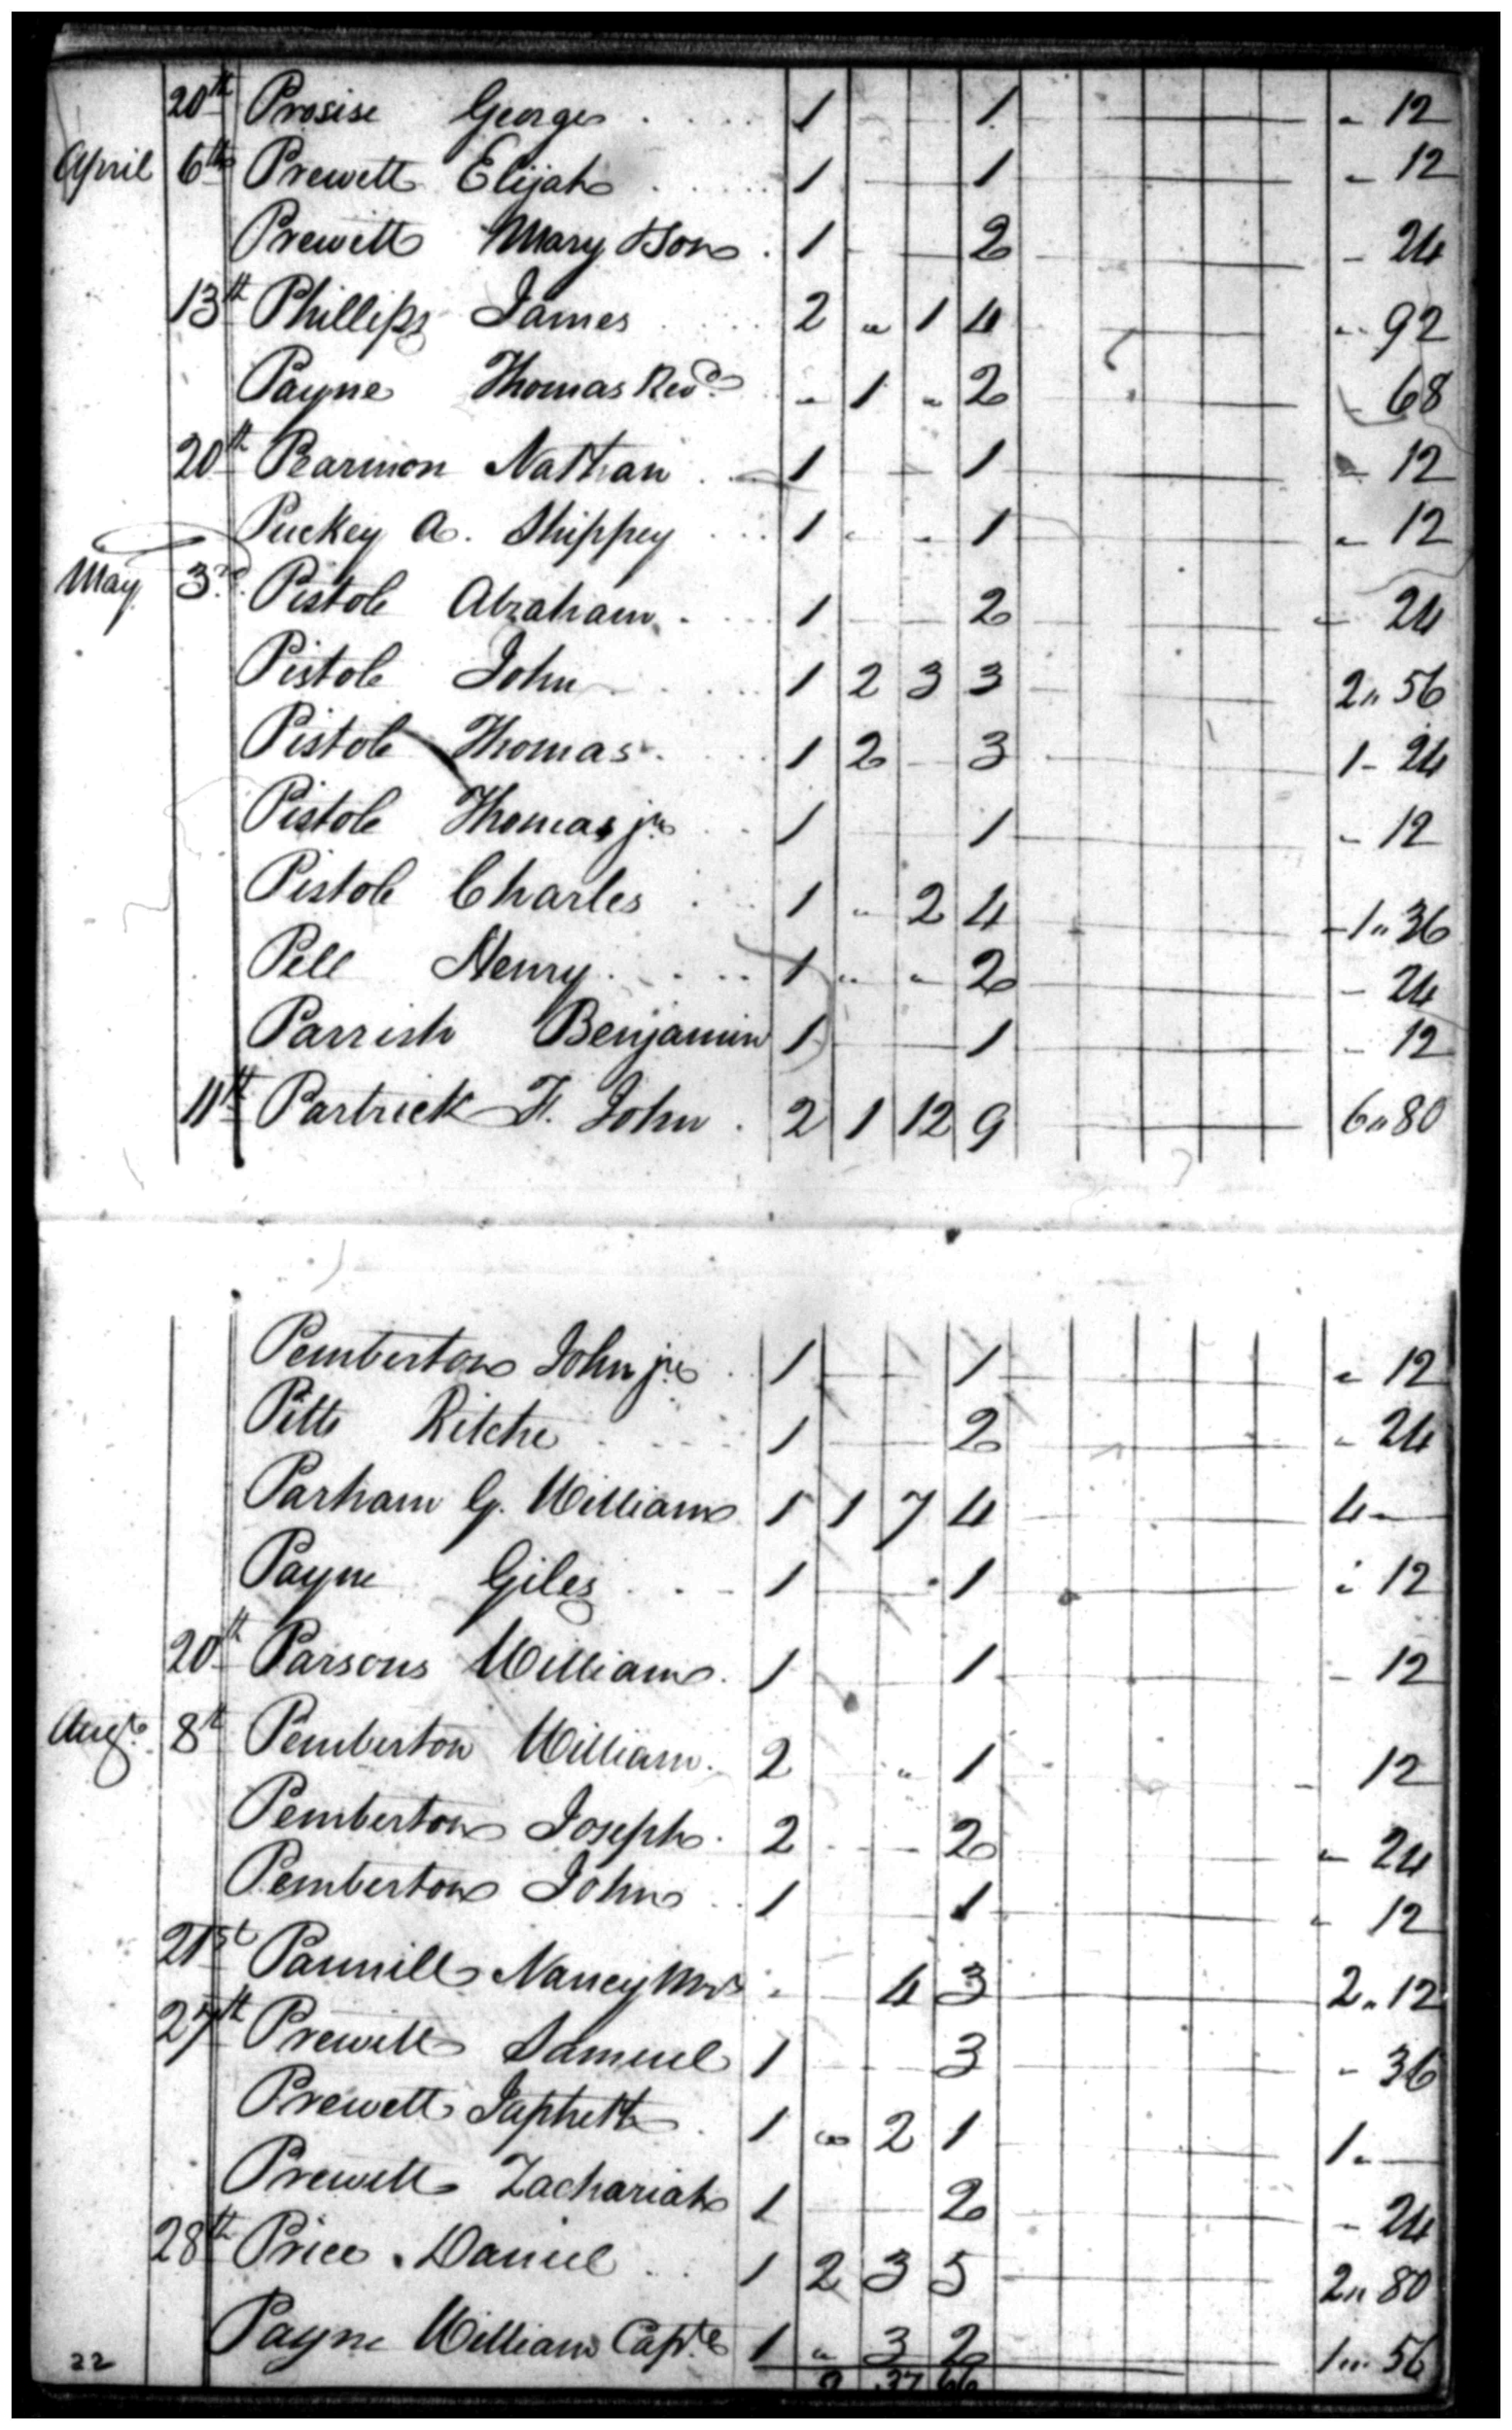 20th Prosise George 1 1 - 12
April 6th Prewett Elijah 1 1 - 12
Prewitt Mary & Son 1 2 - 24
13th Phillips James 2 " 1 4 - 92
Payne Thomas Revd - 1 - 2 - 68
20th Pearmon Nathan 1 1 - 12
Puckey A. Shippey 1 - - 1 - 12
May 3rd Pistole Abraham 1 2 - 24
Pistole John 1 2 3 3 2 " 56
Pistole Thomas 1 2 3 1 - 24
Pistole Thomas jr 1 1 - 12
Pistole Charles 1 " 2 4 - 1 " 36
Pell Henry 1 " " 2 - 24
Parrish Benjamin 1 1 - 12
11th Partrick F. John 2 1 12 9 6 " 80
Pemberton John jr 1 1 - 12
Pitts Ritche 1 2 - 24
Parham G. William 1 1 7 4 4 -
Payne Giles 1 1 - 12
20th Parsons William 1 1 - 12
Augt 8th Pemberton William 2 " 1 - 12
Pemberton Joseph 2 2 - 24
Pemberton John 1 1 - 12
21st Pannill Nancy Mrs 4 3 2 " 12
27th Prewitt Samuel 1 3 - 36
Prewett Japheth 1 " 2 1 1 -
Prewitt Zachariah 1 2 - 24
28th Price Daniel 1 2 3 5 2 " 80
Payne William Capt 1 " 3 2 1 " 56
22 37 66